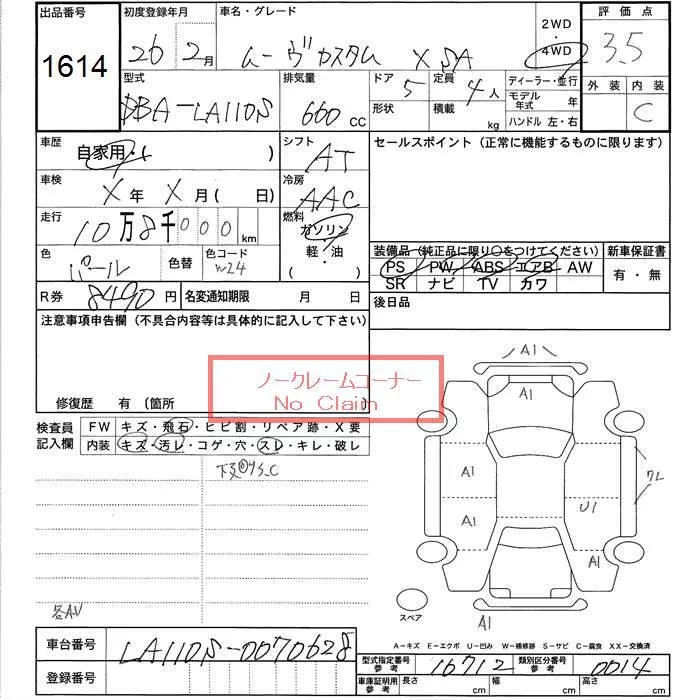 出品番号 初度登録年月 車名・グレード 2WD・4WD 評価点
1614 26年 2月 ムーヴカスタム X SA 3.5
型式 排気量 ドア 定員 ディーラー・並行 外装 内装
DBA-LA110S 660cc 5 4人 モデル年式 年 C
形状 積載 kg ハンドル 左・右
車歴 自家用・( ) シフト AT セールスポイント(正常に機能するものに限ります)
車検 X年 X月( 日) 冷房 AAC
走行 10万8千000km 燃料 ガソリン・軽・油( )
色 パール 色替 色コード W24
装備品(純正品に限り○をつけてください) 新車保証書
PS PW ABS エアB AW 有・無
SR ナビ TV カワ
R券 8490円 名変通知期限 月 日 後日品
注意事項申告欄(不具合内容等は具体的に記入して下さい)
ノークレームコーナー
No Claim
修復歴 有(箇所 )
検査員記入欄 FW キズ・飛石・ヒビ割・リペア跡・X要
内装 キズ・汚レ・コゲ・穴・スレ・キレ・破レ
下廻 サS.C
各AU
A1
A1
A1 ワレ
A1 U1
A1
A1
スペア
A-キズ E-エクボ U-凹み W-補修跡 S-サビ C-腐食 XX-交換済
車台番号 LA110S-0070628 型式指定番号参考 16712 類別区分番号参考 0014
登録番号 車庫証明用参考 長さ cm 幅 cm 高さ cm